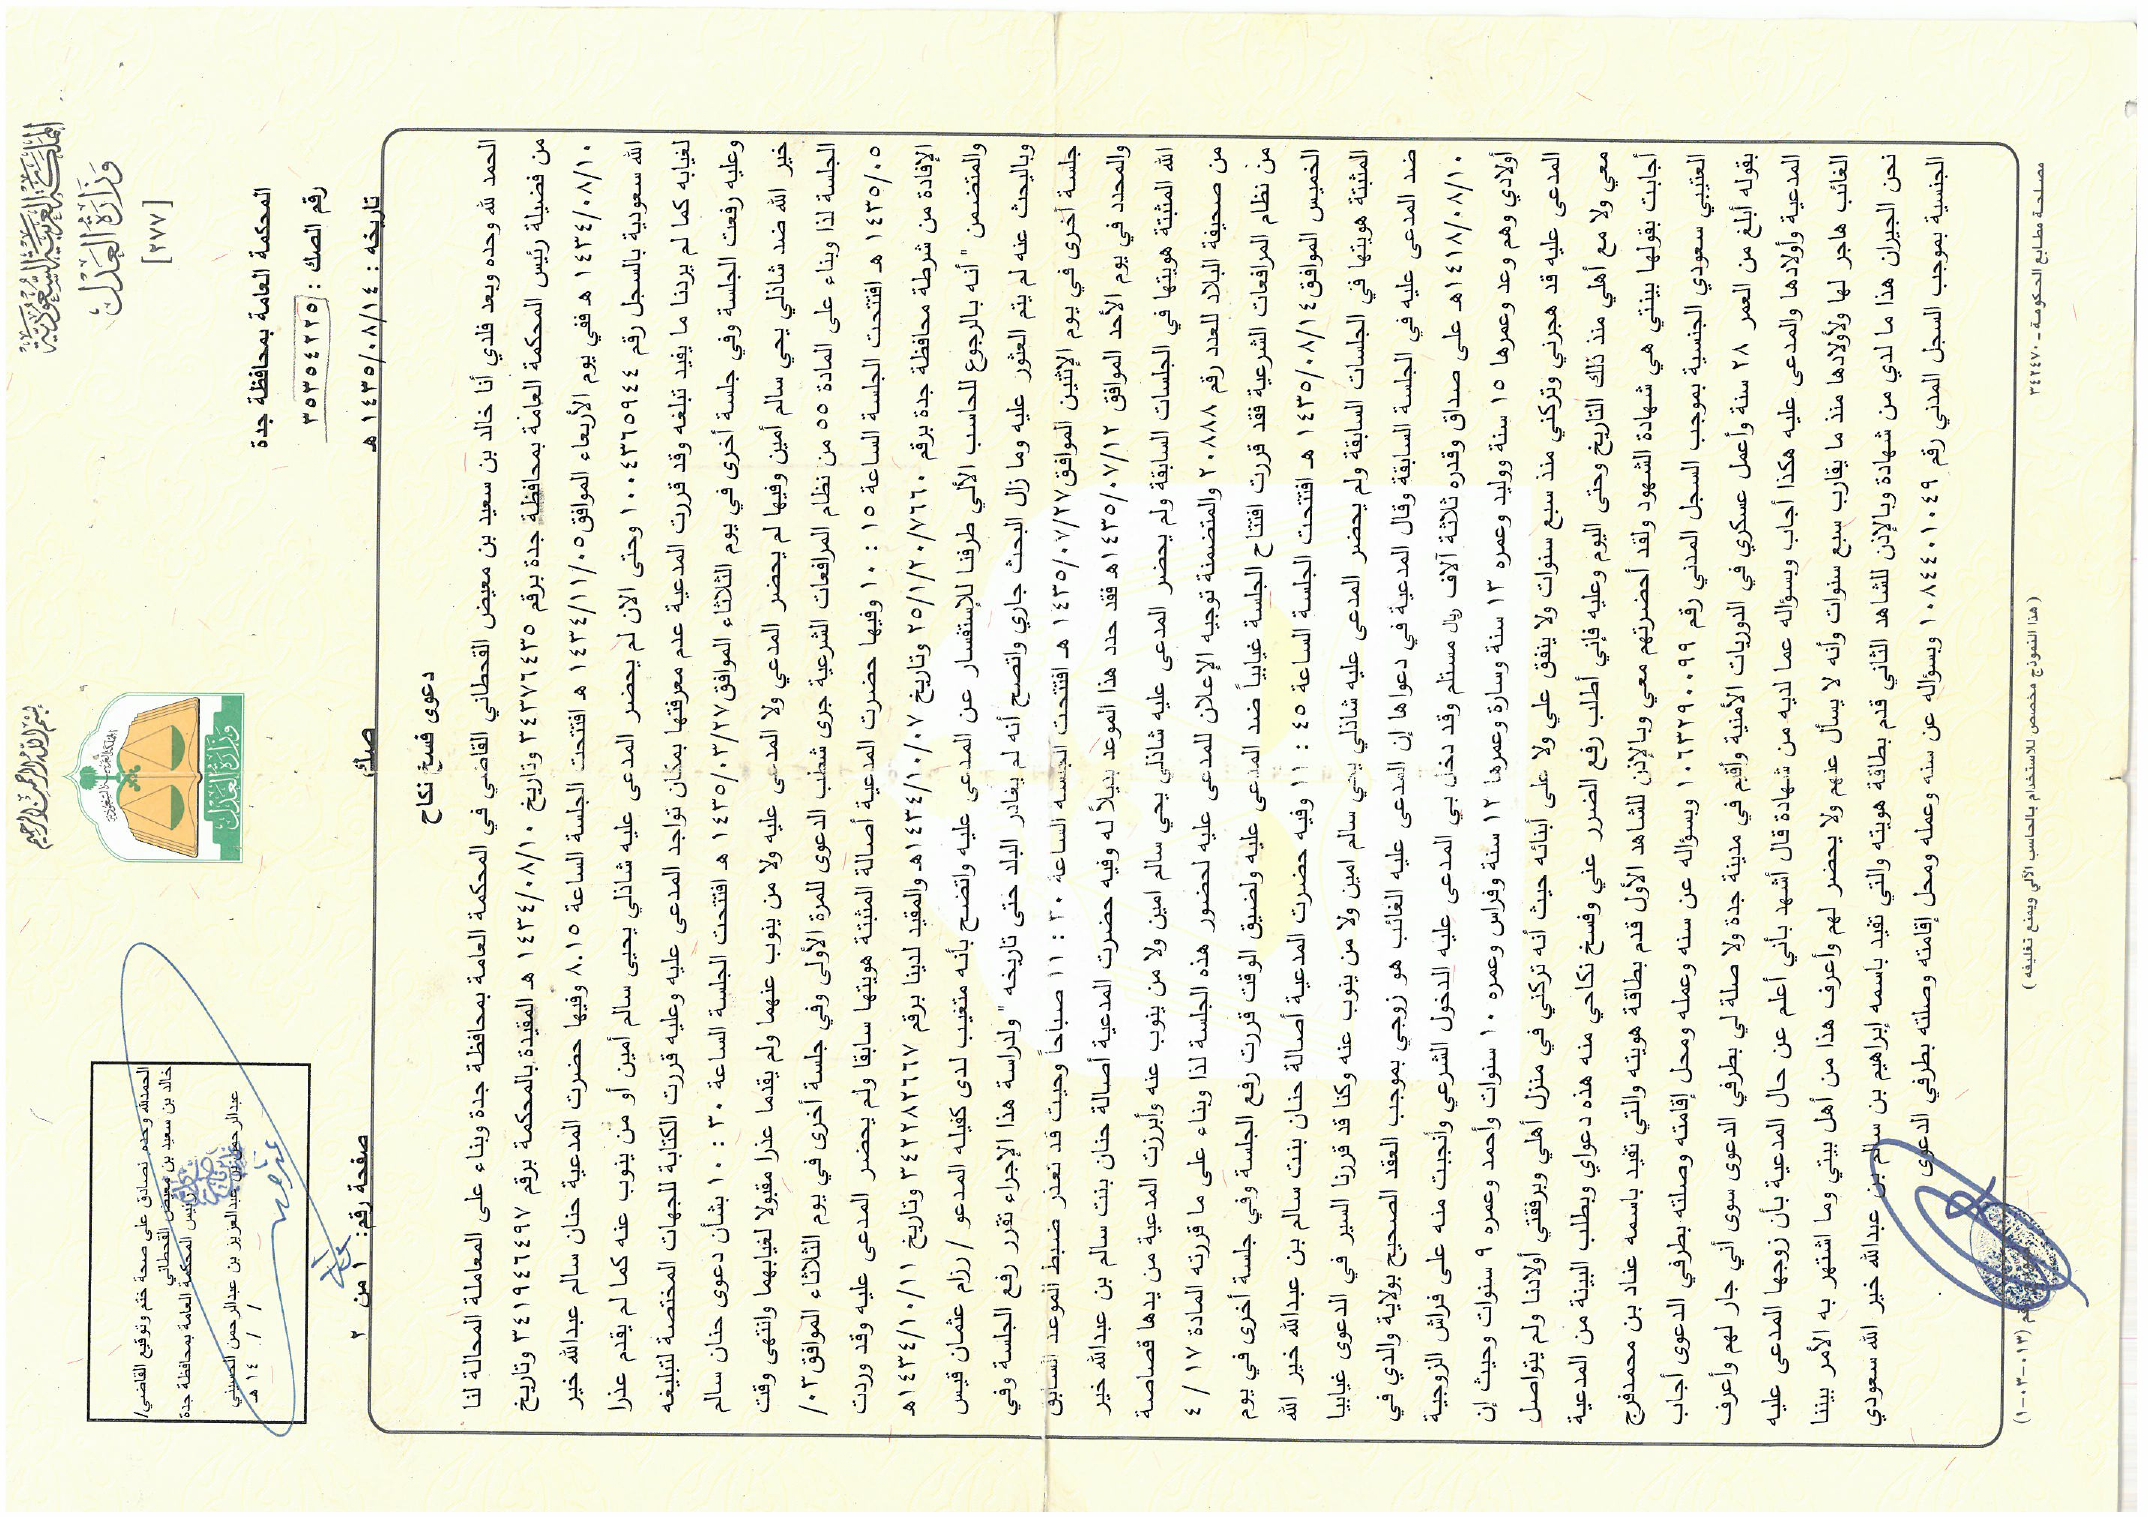 بسم الله الرحمن الرحيم
المملكة العربية السعودية
وزارة العدل
[٢٧٧]
وزارة العدل
المحكمة العامة بمحافظة جدة
رقم الصك : ٣٥٣٥٤٢٢٥
تاريخه : ١٤٣٥/٠٨/١٤ هـ
صك
صفحة رقم: ١ من ٢
الحمدلله وحده نصادق على صحة ختم وتوقيع القاضي/
خالد بن سعيد بن معيض القحطاني
رئيس المحكمة العامة بمحافظة جدة
عبدالرحمن بن عبدالعزيز بن عبدالرحمن الحسيني
/ / ١٤ هـ
دعوى فسخ نكاح
الحمد لله وحده وبعد فلدي أنا خالد بن سعيد بن معيض القحطاني القاضي في المحكمة العامة بمحافظة جدة وبناء على المعاملة المحالة لنا
من فضيلة رئيس المحكمة العامة بمحافظة جدة برقم ٣٤٣٧٦٤٣٥ وتاريخ ١٤٣٤/٠٨/١٠ هـ المقيدة بالمحكمة برقم ٣٤١٩٤٦٤٩٧ وتاريخ
١٤٣٤/٠٨/١٠ هـ ففي يوم الأربعاء الموافق ١٤٣٤/١١/٠٥ هـ افتتحت الجلسة الساعة ٨.١٥ وفيها حضرت المدعية حنان سالم عبدالله خير
الله سعودية بالسجل رقم ١٠٠٤٣٦٥٩٤٤ وحتى الان لم يحضر المدعى عليه شاذلي يحيى سالم أمين أو من ينوب عنه كما لم يقدم عذرا
لغيابه كما لم يردنا ما يفيد تبلغه وقد قررت المدعية عدم معرفتها بمكان تواجد المدعى عليه وعليه قررت الكتابة للجهات المختصة لتبليغه
وعليه رفعت الجلسة وفي جلسة أخرى في يوم الثلاثاء الموافق ١٤٣٥/٠٣/٢٧ هـ افتتحت الجلسة الساعة ٣٠ : ١٠ بشأن دعوى حنان سالم
خير الله ضد شاذلي يحي سالم أمين وفيها لم يحضر المدعي ولا المدعى عليه ولا من ينوب عنهما ولم يقدما عذرا مقبولا لغيابهما وانتهى وقت
الجلسة لذا وبناء على المادة ٥٥ من نظام المرافعات الشرعية جرى شطب الدعوى للمرة الأولى وفي جلسة أخرى في يوم الثلاثاء الموافق ٠٣/
١٤٣٥/٠٥ هـ افتتحت الجلسة الساعة ١٥ : ١٠ وفيها حضرت المدعية أصالة المثبتة هويتها سابقا ولم يحضر المدعى عليه وقد وردت
الإفادة من شرطة محافظة جدة برقم ٢٥/١/٢٠/٧٦٦٠ وتاريخ ١٤٣٤/١٠/٠٧هـ والمقيد لدينا برقم ٣٤٢٢٨٢٦٦٧ وتاريخ ١٤٣٤/١٠/١١هـ
والمتضمن " أنه بالرجوع للحاسب الآلي طرفنا للإستفسار عن المدعى عليه واتضح بأنه متغيب لدى كفيله المدعو / رزام عثمان قيس
وبالبحث عنه لم يتم العثور عليه وما زال البحث جاري واتضح أنه لم يغادر البلد حتى تاريخه " ولدراسة هذا الإجراء تقرر رفع الجلسة وفي
جلسة أخرى في يوم الإثنين الموافق ١٤٣٥/٠٧/٢٧ هـ افتتحت الجلسة الساعة ٣٠ : ١١ صباحاً وحيث قد تعذر ضبط الموعد السابق
والمحدد في يوم الأحد الموافق ١٤٣٥/٠٧/١٢هـ فقد حدد هذا الموعد بديلاً له وفيه حضرت المدعية أصالة حنان بنت سالم بن عبدالله خير
الله المثبتة هويتها في الجلسات السابقة ولم يحضر المدعى عليه شاذلي يحي سالم امين ولا من ينوب عنه وأبرزت المدعية من يدها قصاصة
من صحيفة البلاد للعدد رقم ٢٠٨٨٨ والمتضمنة توجيه الإعلان للمدعى عليه لحضور هذه الجلسة لذا وبناء على ما قررته المادة ١٧ / ٤
من نظام المرافعات الشرعية فقد قررت افتتاح الجلسة غيابياً ضد المدعى عليه ولضيق الوقت قررت رفع الجلسة وفي جلسة أخرى في يوم
الخميس الموافق ١٤٣٥/٠٨/١٤ هـ افتتحت الجلسة الساعة ٤٥ : ١١ وفيه حضرت المدعية أصالة حنان بنت سالم بن عبدالله خير الله
المثبتة هويتها في الجلسات السابقة ولم يحضر المدعى عليه شاذلي يحي سالم امين ولا من ينوب عنه وكنا قد قررنا السير في الدعوى غيابيا
ضد المدعى عليه في الجلسة السابقة وقال المدعية في دعواها إن المدعى عليه الغائب هو زوجي بموجب العقد الصحيح بولاية والدي في
١٤١٨/٠٨/١٠هـ على صداق وقدره ثلاثة آلاف ريال مستلم وقد دخل بي المدعى عليه الدخول الشرعي وأنجبت منه على فراش الزوجية
أولادي وهم وعد وعمرها ١٥ سنة ووليد وعمره ١٣ سنة وسارة وعمرها ١٢ سنة وفراس وعمره ١٠ سنوات وأحمد وعمره ٩ سنوات وحيث إن
المدعى عليه قد هجرني وتركني منذ سبع سنوات ولا ينفق علي ولا على أبنائه حيث أنه تركني في منزل أهلي وبرفقتي أولادنا ولم يتواصل
معي ولا مع أهلي منذ ذلك التاريخ وحتى اليوم وعليه فإني أطلب رفع الضرر عني وفسخ نكاحي منه هذه دعواي وبطلب البينة من المدعية
أجابت بقولها بينتي هي شهادة الشهود ولقد أحضرتهم معي وبالإذن للشاهد الأول قدم بطاقة هويته والتي تفيد باسمه عناد بن محمدفرج
العتيبي سعودي الجنسية بموجب السجل المدني رقم ١٠٦٣٢٩٠٠٩٩ وبسؤاله عن سنه وعمله ومحل إقامته وصلته بطرفي الدعوى أجاب
بقوله أبلغ من العمر ٢٨ سنة وأعمل عسكري في الدوريات الأمنية وأقيم في مدينة جدة ولا صلة لي بطرفي الدعوى سوى أني جار لهم وأعرف
المدعية وأولادها والمدعى عليه هكذا أجاب وبسؤاله عما لديه من شهادة قال أشهد بأني أعلم عن حال المدعية بأن زوجها المدعى عليه
الغائب هاجر لها ولأولادها منذ ما يقارب سبع سنوات وأنه لا يسأل عنهم ولا يحضر لهم وأعرف هذا من أهل بيتي وما اشتهر به الأمر بيننا
نحن الجيران هذا ما لدي من شهادة وبالإذن للشاهد الثاني قدم بطاقة هويته والتي تفيد باسمه إبراهيم بن سالم بن عبدالله خير الله سعودي
الجنسية بموجب السجل المدني رقم ١٠٨٤٤٠١٠٤٩ وبسؤاله عن سنه وعمله ومحل إقامته وصلته بطرفي الدعوى
مصلحة مطابع الحكومة - ٣٤٢٤٧٠
( هذا النموذج مخصص للاستخدام بالحاسب الآلي ويمنع تغليفه )
(١-٠٣-٠١٣)